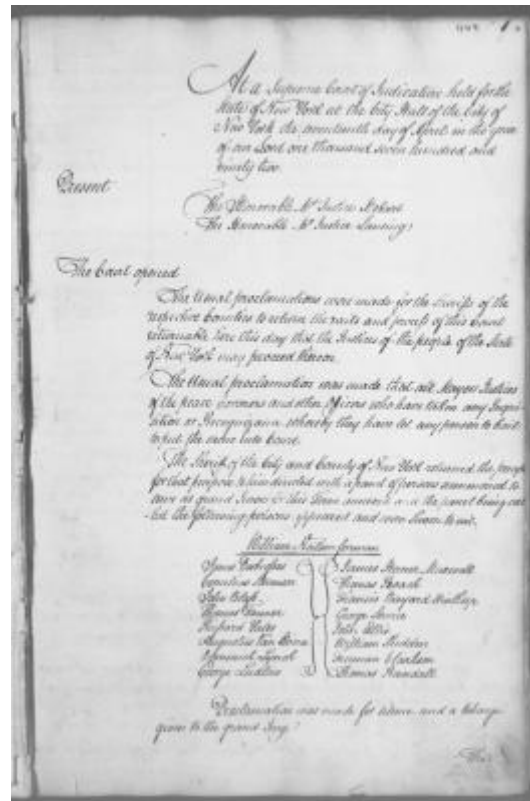 At a Supreme Court of Judicature held for the
State of New York at the City Hall of the City of
New York the seventeenth day of April in the year
of our Lord one thousand seven hundred and
ninety two
Present
The Honorable Mr Justice Hobart
The Honorable Mr Justice Lansing
The Court opened
The Usual proclamations were made for the Sheriffs of the
respective Counties to return the writs and process of this Court
returnable here this day that the Justices of the people of the State
of New York may proceed thereon.
The Usual proclamation was made that all Mayors Justices
of the peace Coroners and other Officers who have taken any Inqui
sition or Recognizance whereby they have let any person to bail
to put the same into Court.
The Sheriff of the City and County of New York returned the precept
for that purpose to him directed with a panel of persons summoned to
serve as grand Jurors this Term and the panel being cal
led the following persons appeared and were sworn to wit.
William foreman
Cornelius
John
Richard Yates
Augustus Van Horne
Lynch
George Ludlow
James
Thomas Roach
Francis Bayard Winthrop
George
John Ellis
William
Thomas Randall
Proclamation was made for silence and a charge
given to the grand Jury.
The